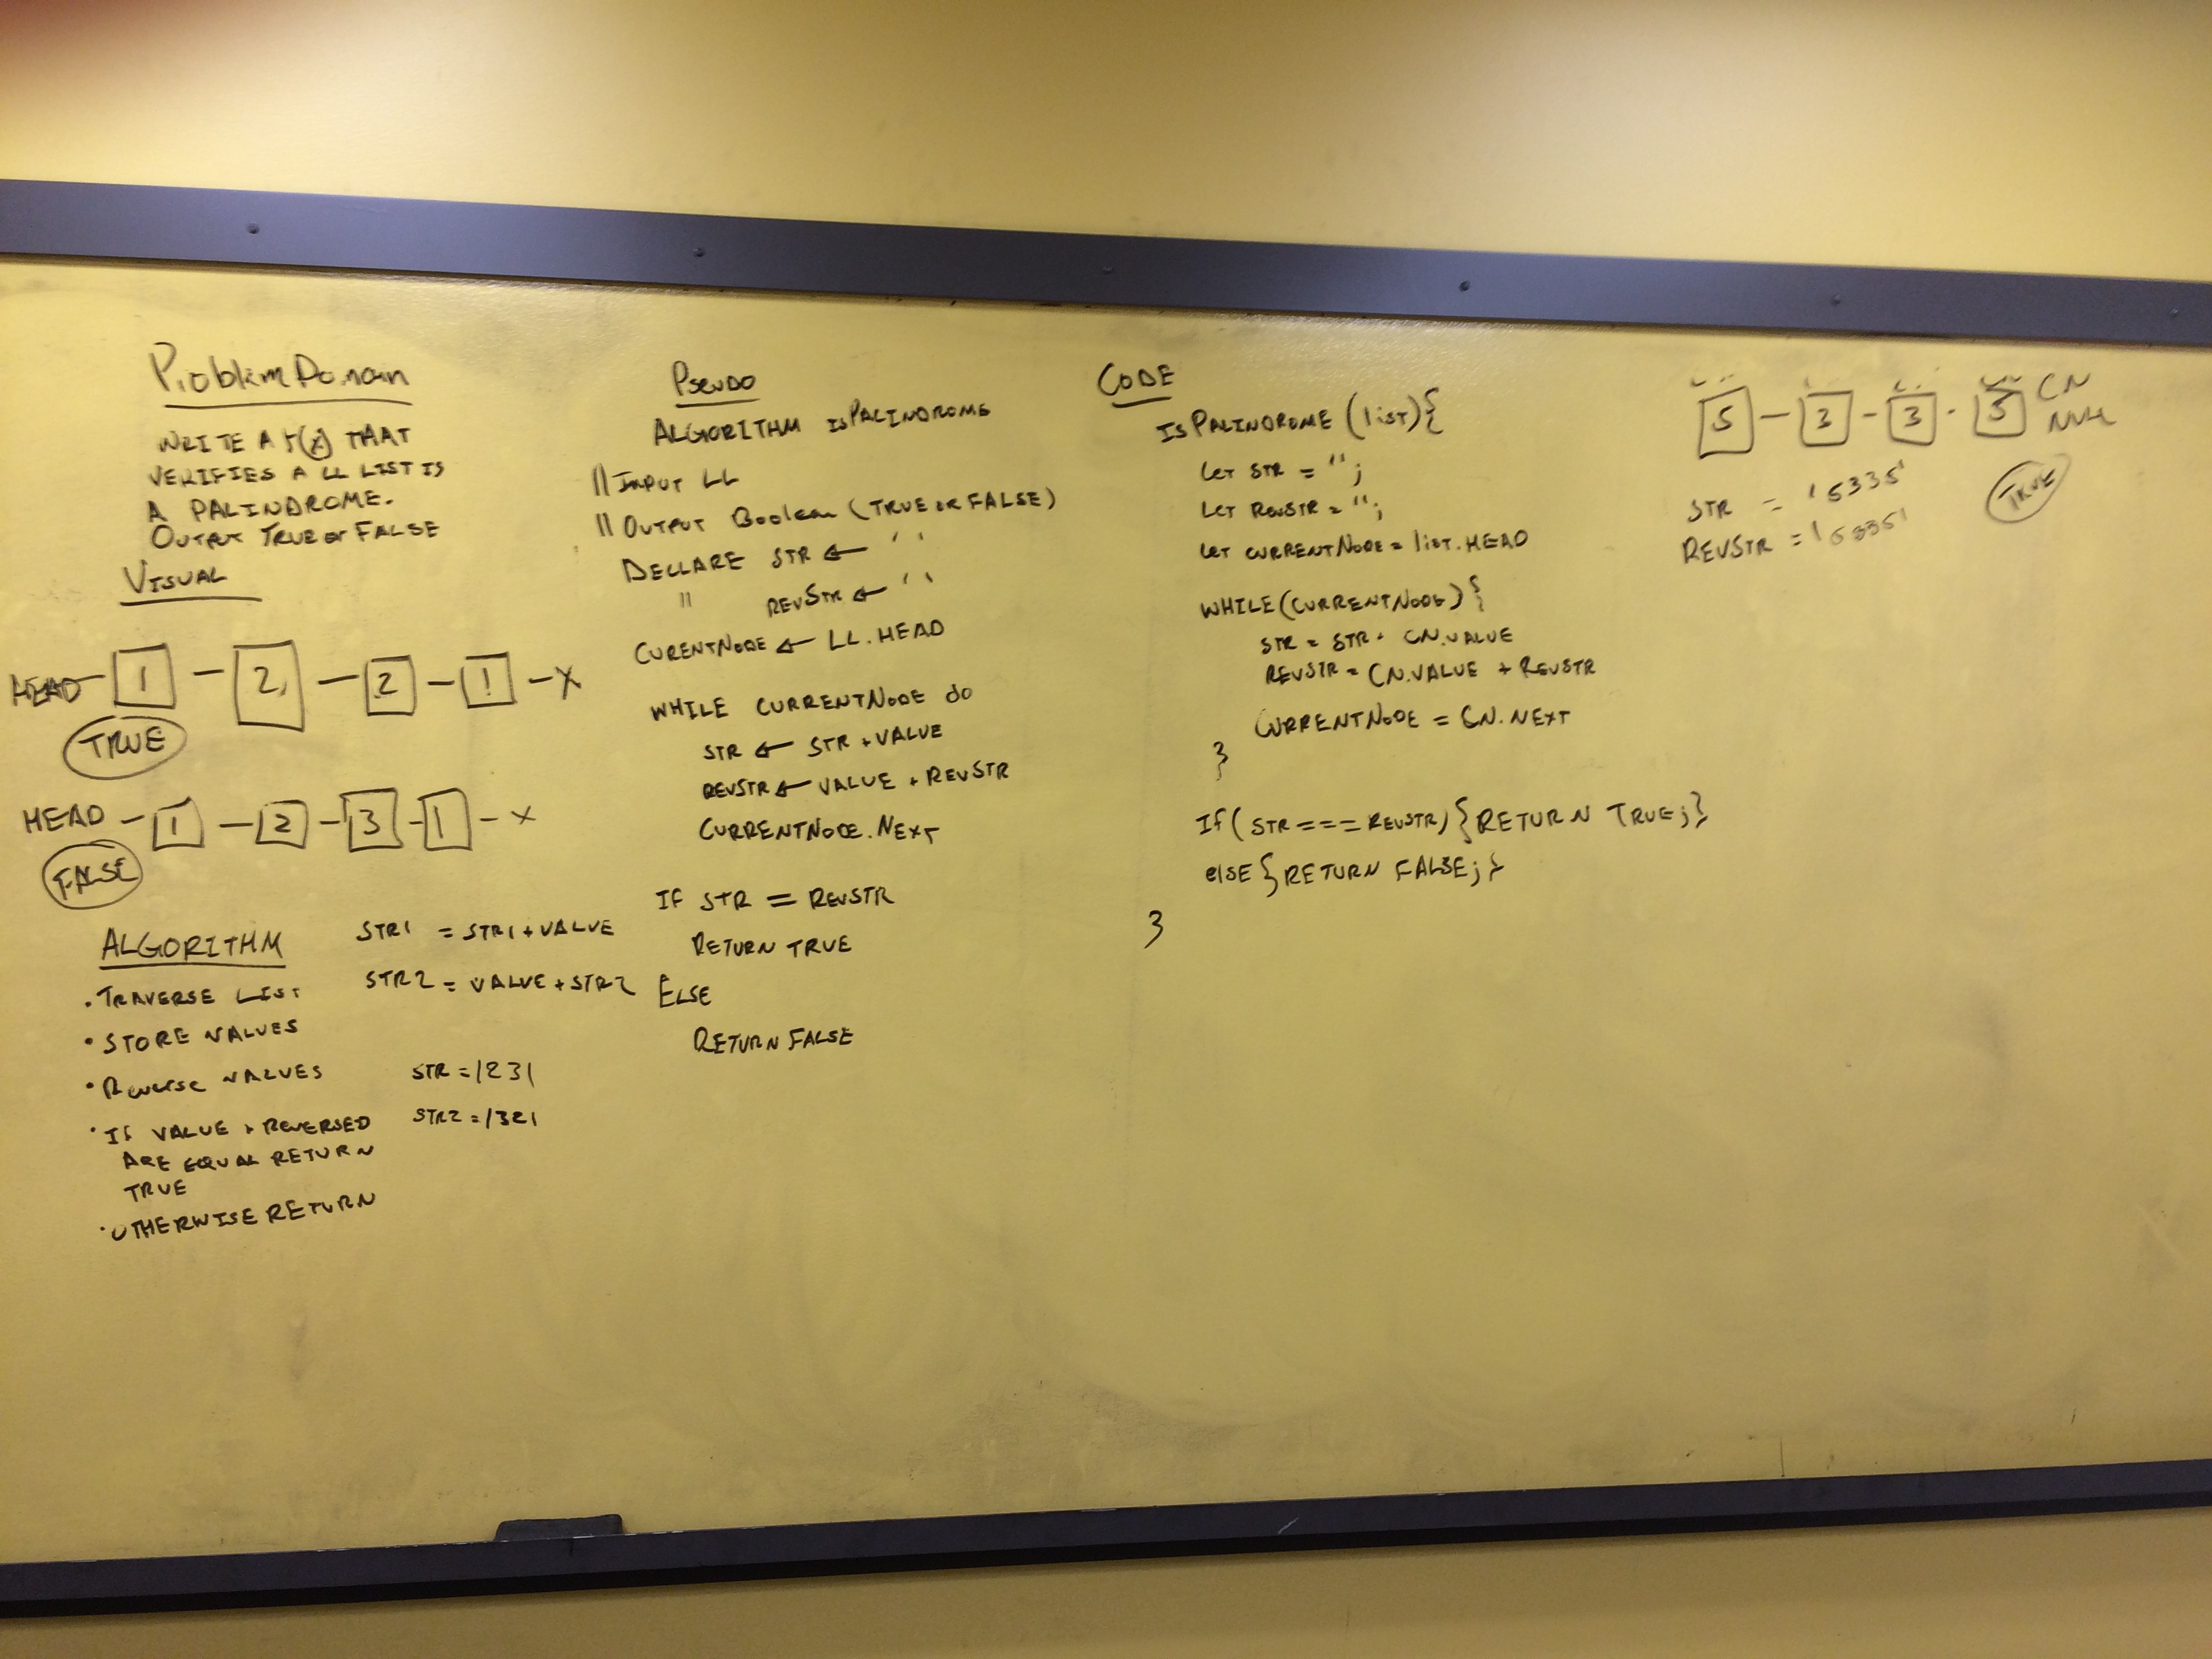 Problem Domain
WRITE A f(x) THAT
VERIFIES A LL LIST IS
A PALINDROME.
OUTPUT TRUE or FALSE
VISUAL
HEAD - 1 - 2 - 2 - 1 - X
TRUE
HEAD - 1 - 2 - 3 - 1 - X
FALSE
ALGORITHM
• TRAVERSE LIST
• STORE VALUES
• Reverse VALUES
• IF VALUE + REVERSED
ARE EQUAL RETURN
TRUE
• OTHERWISE RETURN
STR1 = STR1 + VALUE
STR2 = VALUE + STR2
STR = 1231
STR2 = 1321
PSEUDO
ALGORITHM ISPALINDROME
|| INPUT LL
|| OUTPUT Boolean (TRUE or FALSE)
DECLARE STR ← ' '
" REVSTR ← ' '
CURENTNODE ← LL.HEAD
WHILE CURRENTNODE do
STR ← STR + VALUE
REVSTR ← VALUE + REVSTR
CURRENTNODE.NEXT
IF STR = REVSTR
RETURN TRUE
ELSE
RETURN FALSE
CODE
ISPALINDROME (list){
LET STR = '';
LET REVSTR = '';
LET CURRENTNODE = list.HEAD
WHILE(CURRENTNODE){
STR = STR + CN.VALUE
REVSTR = CN.VALUE + REVSTR
CURRENTNODE = CN.NEXT
}
If( STR === REVSTR) {RETURN TRUE;}
else {RETURN FALSE;}
}
5 - 3 - 3 - 5 CN
NULL
STR = '5335'
REVSTR = '5335'
TRUE